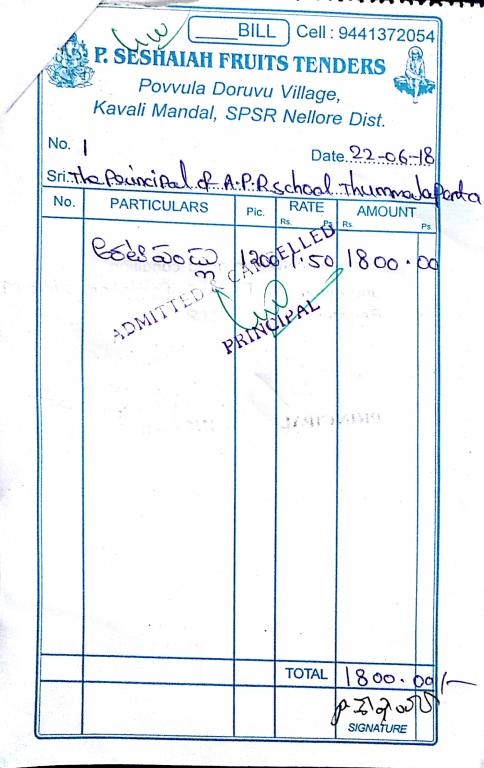 BILL Cell : 9441372054
P. SESHAIAH FRUITS TENDERS
Povvula Doruvu Village,
Kavali Mandal, SPSR Nellore Dist.
No. 1
Date. 22-06-18
Sri. The Principal of A.P.R School Thummalapenta
No. PARTICULARS Pic. RATE AMOUNT
Rs. Ps. Rs. Ps.
అరటిపండ్లు 1200 1.50 1800.00
ADMITTED & CANCELLED
PRINCIPAL
TOTAL 1800.00/-
SIGNATURE